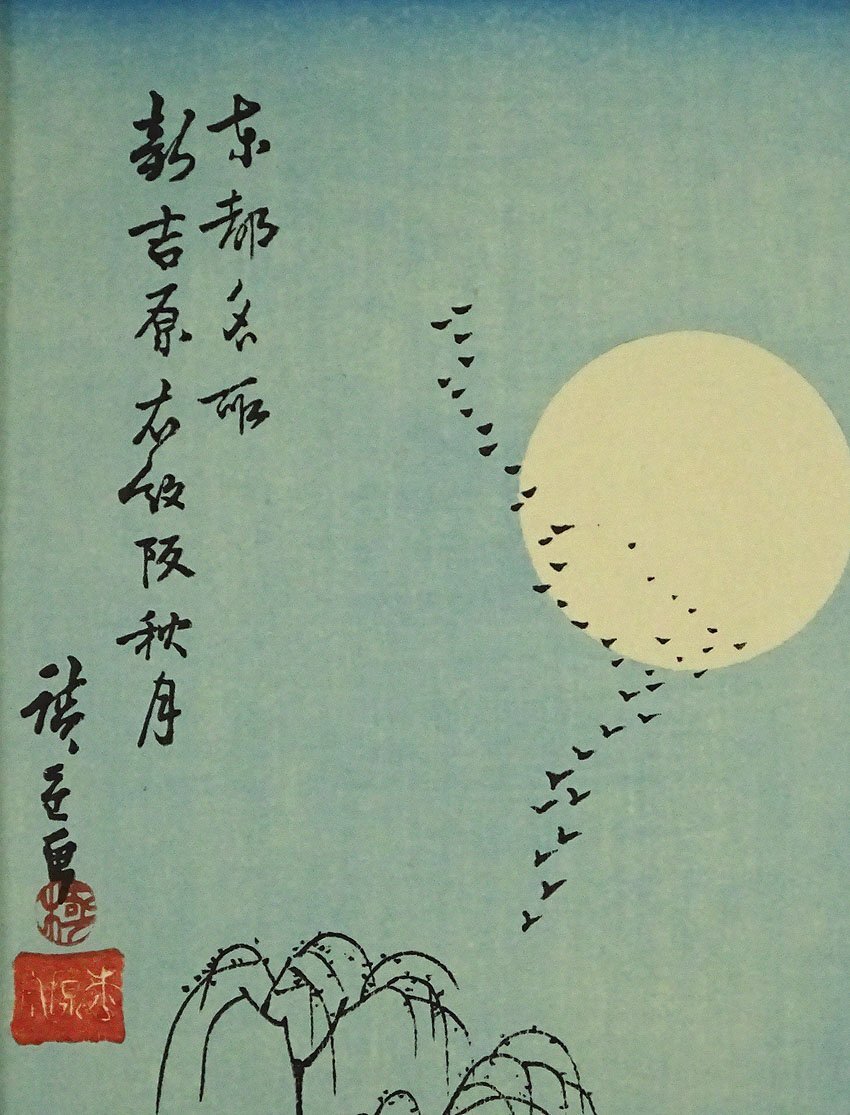 東都名所
新吉原衣紋阪秋月
廣重画
極